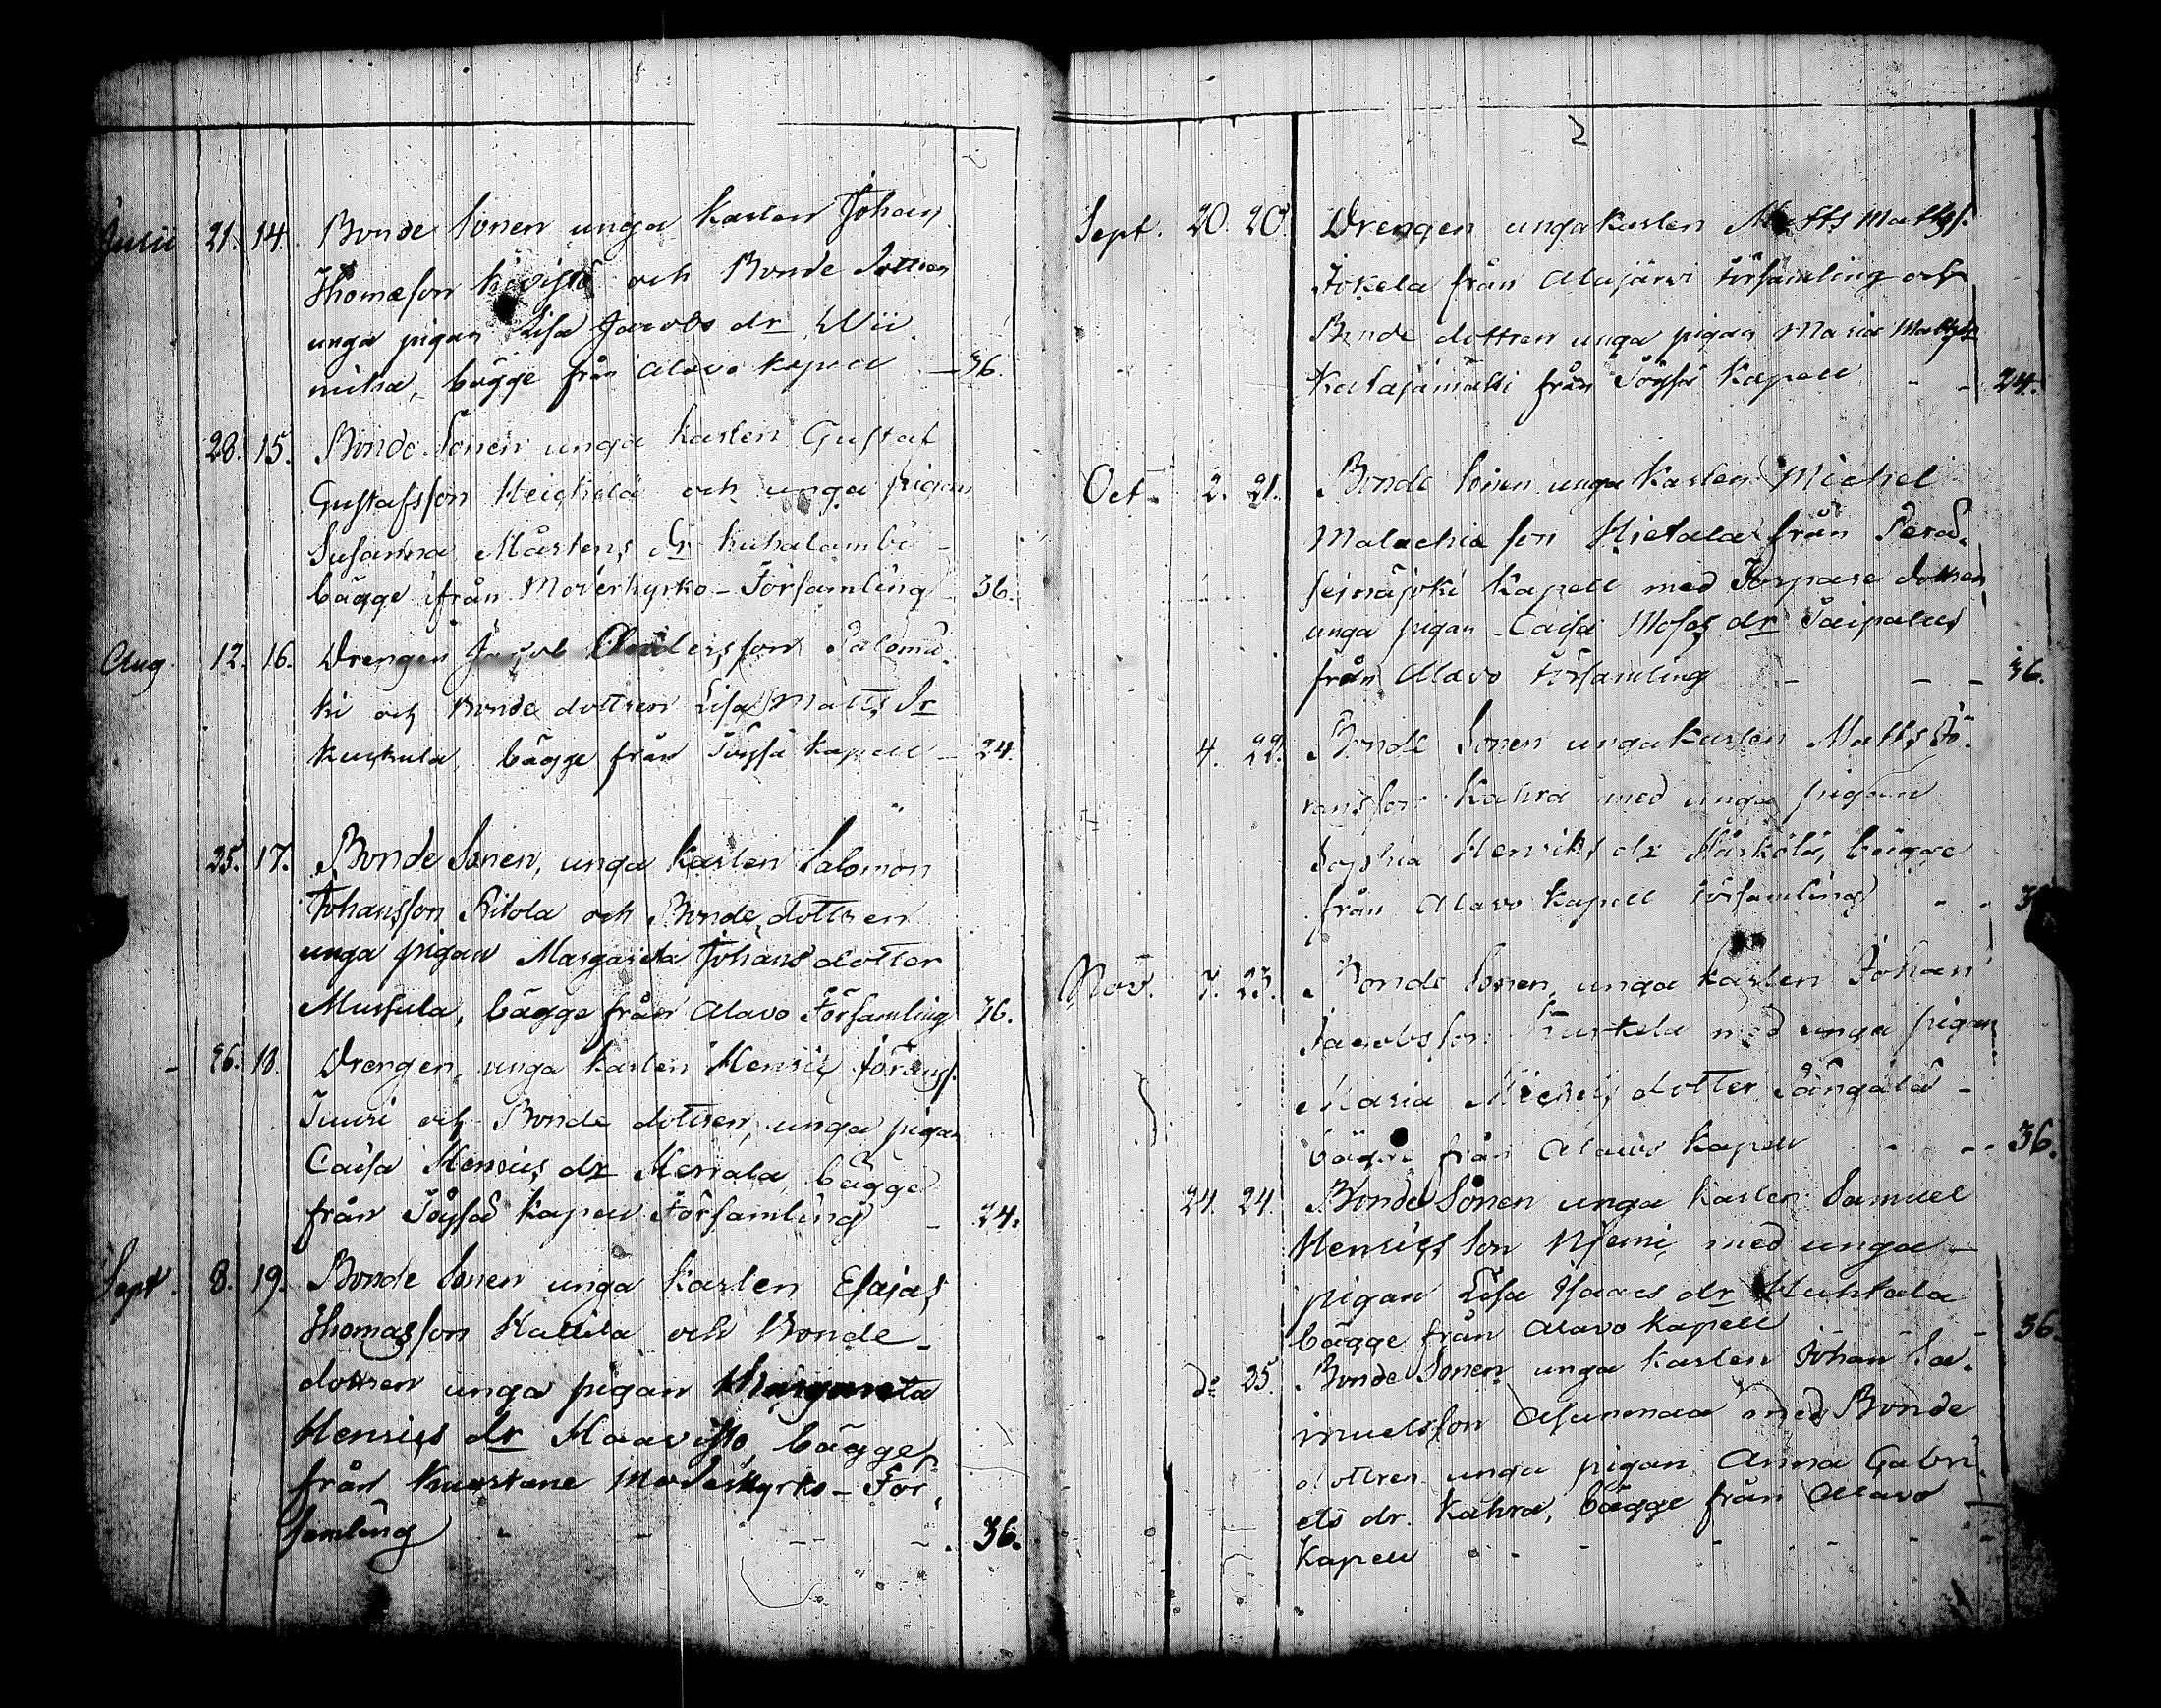 Julii 21. 14. Bonde Sonen unga Karlen Johan
Thomæson Kivistö och Bonde dottren
unga pigan Lisa Jacobs dr Wii
nika, bägge från Alavo kapell — 36.
28. 15. Bonde Sonen unga Karlen Gustaf
Gustafsson Heickilä och unga pigan
Susanna Mårtens dr Kuhalambi
bägge ifrån Moderkyrko-Församling 36.
Aug. 12. 16. Drengen Jacob Andersson Salomä
ki och Bonde dottren Lisa Matts dr
Kuckula, bägge från Töysä Kapell — 24.
25. 17. Bonde Sonen, unga Karlen Salomon
Johansson Ritola och Bonde dottren
unga pigan Margareta Johans dotter
Mustula, bägge från Alavo Församling 36.
26. 18. Drengen, unga Karlen Henric Jöranss.
Tuuri och Bonde dottren, unga pigan
Caisa Henrics dr Herrala, bägge
från Töysä Kapell Församling — 24.
Sept. 8. 19. Bonde Sonen unga Karlen Esaias
Thomasson Kattila och Bonde
dottren unga pigan Margareta
Henrics dr Haavisto, bägge
från Kuortane Moderkyrko-För
samling 36.
2
Sept. 20. 20. Drengen unga Karlen Matts Mattss.
Jokela från Alajärvi Församling och
Bonde dottren unga pigan Maria Matts dr
Katajamäki från Töysä Kapell - - 24.
Oct. 2. 21. Bonde Sonen unga Karlen Michel
Malachia son Hietala från Perä
seinäjoki Kapell med Torpare dottren
unga pigan Caisa Moses dr Taipalus
från Alavo Församling — — — 36.
4. 22. Bonde Sonen unga Karlen Matts Jö
ransson Kahra med unga pigan
Sophia Henriks dr bägge
från Alavo Kapell Församling - - 3
Nov. 7. 23. Bonde Sonen, unga Karlen Johan
Jacobsson Kuckela med unga pigan
Maria Henrics dotter Sångälä -
bägge från Alavo Kapell - - - 36.
24. 24. Bonde Sonen unga Karlen Samuel
Henrics Son Niemi med unga -
pigan Lisa Isaacs dr Huhtala
bägge från Alavo Kapell - 36.
do 25. Bonde Sonen unga Karlen Johan Sa
muelsson Asunmaa med Bonde
dottren unga pigan Anna Gabri
els dr. Kahra, bägge från Alavo
Kapell